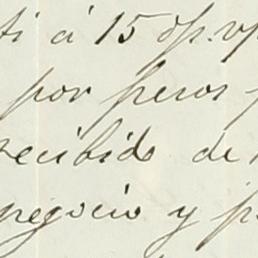 á 15 d/p.
por pesos
recibido de
negocio y